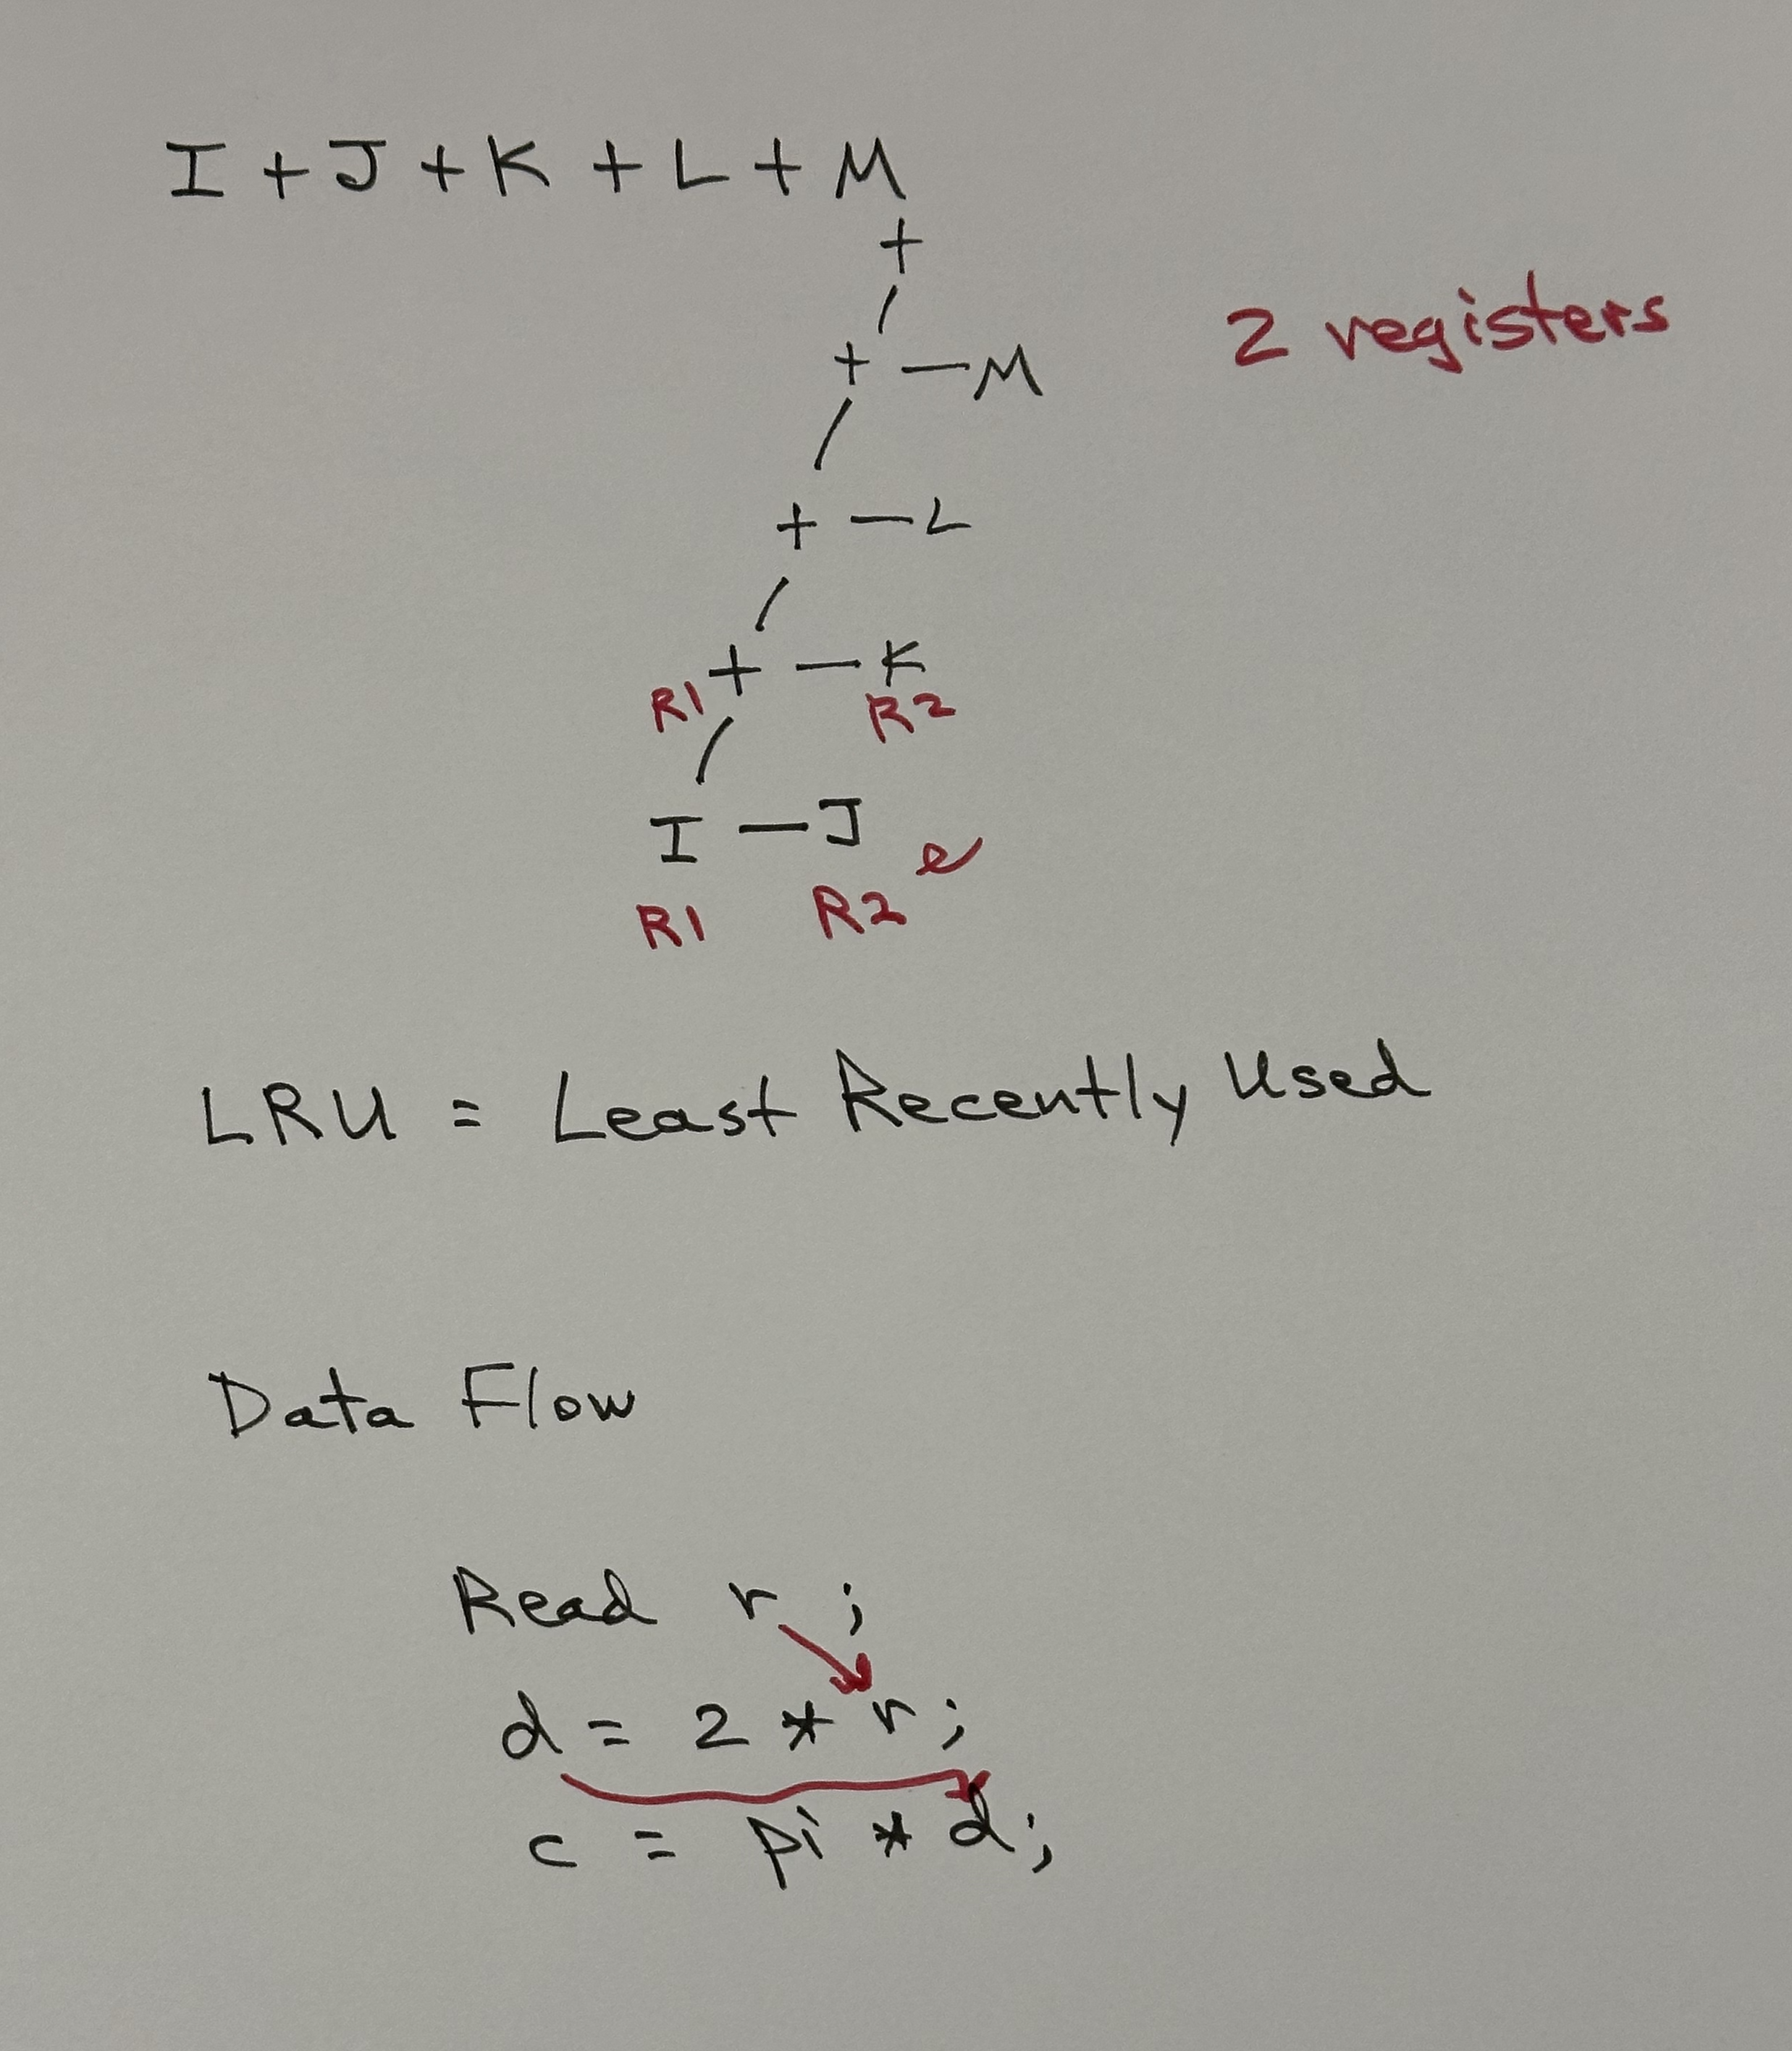 I + J + K + L + M
+
2 registers
+ — M
+ — L
+ — K
R1 R2
I — J
R1 R2
LRU = Least Recently Used
Data Flow
Read r ;
d = 2 * r ;
c = pi * d ;